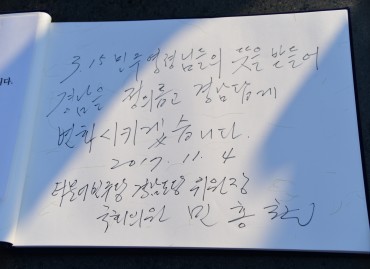 3.15 민주영령님들의 뜻을 받들어
경남을 정의롭고 경남답게
변화시키겠습니다.
2017. 11. 4
더불어민주당 경남도당 위원장
국회의원 민홍철
니다.